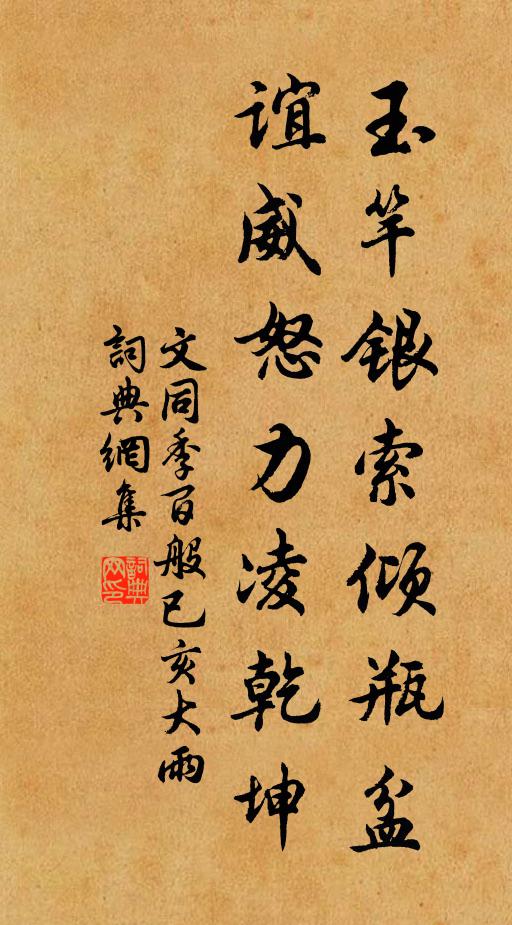 玉竿银索倾瓶盆
谊威怒力凌乾坤
文同季百般己亥大雨
詞典網集
詞典网印